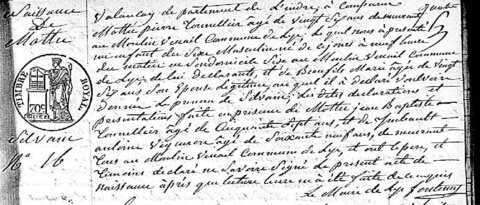 Naissance
De
Mottu
TIMBRE ROYAL
Silvain
N° 16
Valançay departement de l'indre, à Comparu
Mottu pierre Tonnellier agé de Vingt Six ans demeurant
au Moulin Venail Commune de Lye, lequel nous a présenté
un enfant du Sexe Masculin né de ce jour à neuf heure
du matin en Son domicile Sise au Moulin Venail Commune
de Lye, de lui déclarant, et de Marie agé de Vingt
Six ans Son Epouse légitime au quel il à déclaré Vouloir
donner le prenom de Silvain, les dites déclarations et
présentation faite en présence de Mottu jean Baptiste
Tonnellier agé de Cinquante Sept ans et de Imbault
antoine Vigneron agé de Soixante neuf ans, demeurant
Tous au Moulin Venail Commune de Lye, et ont le pere, et
témoins déclaré ne Savoir Signé de présent acte de
naissance après que lecture leure en a été faite
Le Maire de Lye